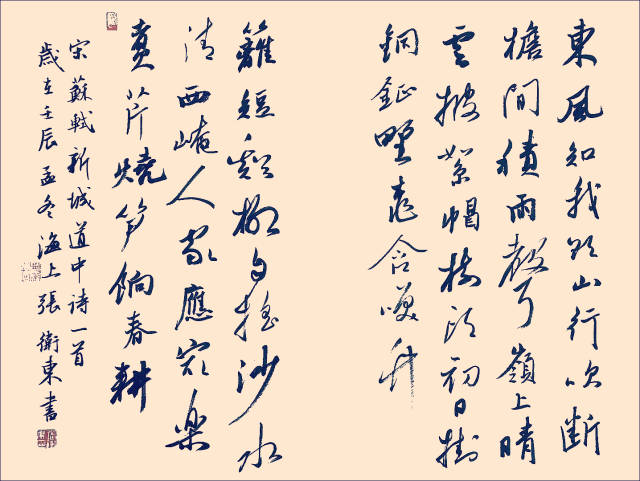 東風知我欲山行吹斷
檐間積雨聲嶺上晴
雲披絮帽樹頭初日掛
銅鉦野桃含笑竹
籬短溪柳自搖沙水
清西崦人家應最樂
煮芹燒笋餉春耕
宋蘇軾新城道中詩一首
歲在壬辰孟冬海上張衛東書